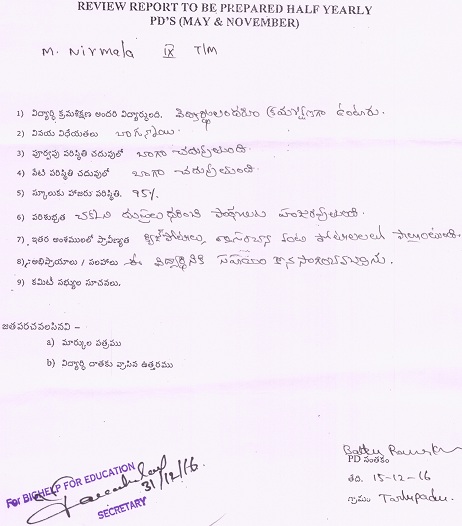 REVIEW REPORT TO BE PREPARED HALF YEARLY
PD'S (MAY & NOVEMBER)
M. Nirmala IX T/M
1) విద్యార్థి క్రమశిక్షణ అందరి విద్యార్థులది. విద్యార్థులందరును క్రమశిక్షణగా ఉంటారు.
2) వినయ విధేయతలు బాగున్నాయి.
3) పూర్వపు పరిస్థితి చదువులో బాగా చదువుతుంది.
4) నేటి పరిస్థితి చదువులో బాగా చదువుతుంది.
5) స్కూలుకు హాజరు పరిస్థితి. 95%.
6) పరిశుభ్రత చక్కటి దుస్తులు ధరించి
7) ఇతర అంశములలో ప్రావీణ్యత వంటి పోటీలలో
8) అభిప్రాయాలు / సలహాలు ఈ విద్యార్థినికి సహాయం
9) కమిటీ సభ్యుల సూచనలు.
జతపరచవలసినవి –
a) మార్కుల పత్రము
b) విద్యార్థి దాతకు వ్రాసిన ఉత్తరము
For BIGHELP FOR EDUCATION
31/12/16.
SECRETARY
PD సంతకం
తేది. 15-12-16
గ్రామం